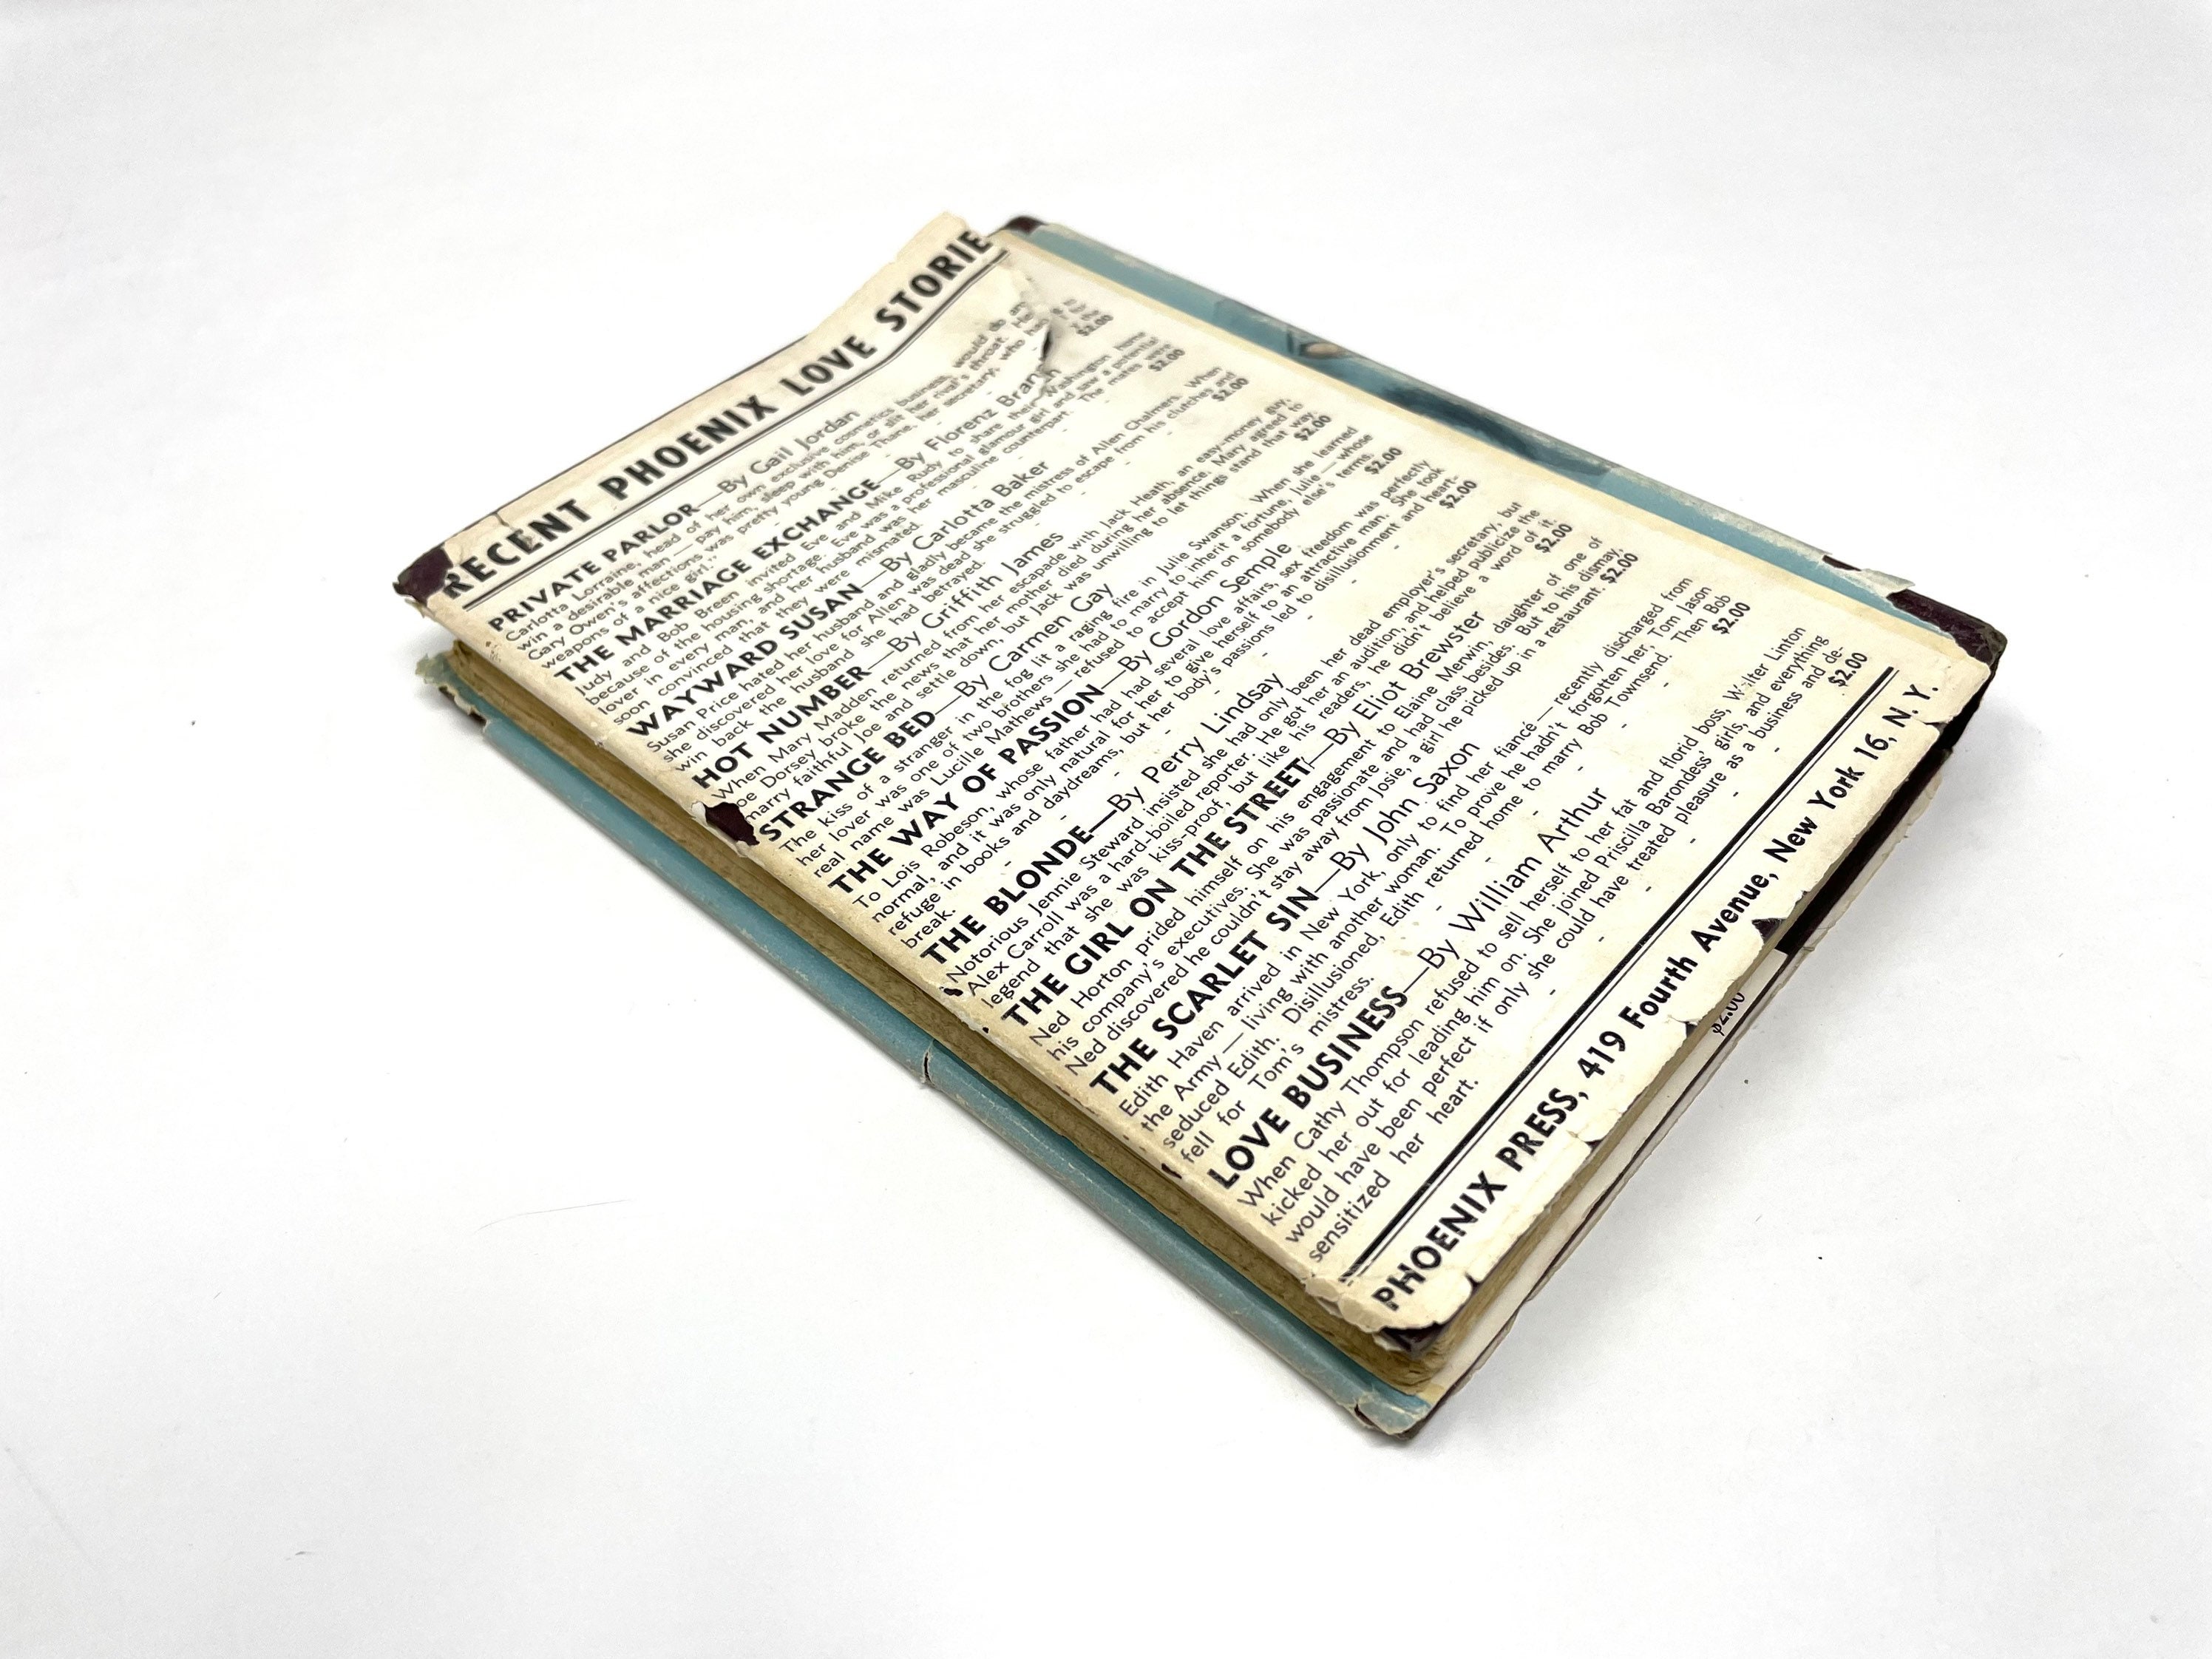 RECENT PHOENIX LOVE STORIE
PRIVATE PARLOR—By Gail Jordan
Carlotta Lorraine, head of her own exclusive cosmetics business, would do
win a desirable man — pay him, sleep with him, or slit her rival's throat.
Cary Owen's affections was pretty young Denise Thane, her secretary, who had
weapons of a nice girl. $2.00
THE MARRIAGE EXCHANGE—By Florenz Bran
Judy and Bob Breen invited Eve and Mike Rudy to share their Washington home
because of the housing shortage. Eve was a professional glamour girl and saw a potential
lover in every man, and her husband was her masculine counterpart. The mates were
soon convinced that they were mismated. $2.00
WAYWARD SUSAN—By Carlotta Baker
Susan Price hated her husband and gladly became the mistress of Allen Chalmers. When
she discovered her love for Allen was dead she struggled to escape from his clutches and
win back the husband she had betrayed. $2.00
HOT NUMBER—By Griffith James
When Mary Madden returned from her escapade with Jack Heath, an easy-money guy,
oe Dorsey broke the news that her mother died during her absence. Mary agreed to
marry faithful Joe and settle down, but Jack was unwilling to let things stand that way.
$2.00
STRANGE BED—By Carmen Gay
The kiss of a stranger in the fog lit a raging fire in Julie Swanson. When she learned
her lover was one of two brothers she had to marry to inherit a fortune, Julie — whose
real name was Lucille Mathews — refused to accept him on somebody else's terms.
$2.00
THE WAY OF PASSION—By Gordon Semple
To Lois Robeson, whose father had had several love affairs, sex freedom was perfectly
normal, and it was only natural for her to give herself to an attractive man. She took
refuge in books and daydreams, but her body's passions led to disillusionment and heart-
break. $2.00
THE BLONDE—By Perry Lindsay
Notorious Jennie Steward insisted she had only been her dead employer's secretary, but
Alex Carroll was a hard-boiled reporter. He got her an audition, and helped publicize the
legend that she was kiss-proof, but like his readers, he didn't believe a word of it.
$2.00
THE GIRL ON THE STREET—By Eliot Brewster
Ned Horton prided himself on his engagement to Elaine Merwin, daughter of one of
his company's executives. She was passionate and had class besides. But to his dismay,
Ned discovered he couldn't stay away from Josie, a girl he picked up in a restaurant. $2.00
THE SCARLET SIN—By John Saxon
Edith Haven arrived in New York, only to find her fiancé — recently discharged from
the Army — living with another woman. To prove he hadn't forgotten her, Tom Jason
seduced Edith. Disillusioned, Edith returned home to marry Bob Townsend. Then Bob
fell for Tom's mistress. $2.00
LOVE BUSINESS—By William Arthur
When Cathy Thompson refused to sell herself to her fat and florid boss, Walter Linton
kicked her out for leading him on. She joined Priscilla Barondess' girls, and everything
would have been perfect if only she could have treated pleasure as a business and de-
sensitized her heart. $2.00
PHOENIX PRESS, 419 Fourth Avenue, New York 16, N. Y.
$2.00